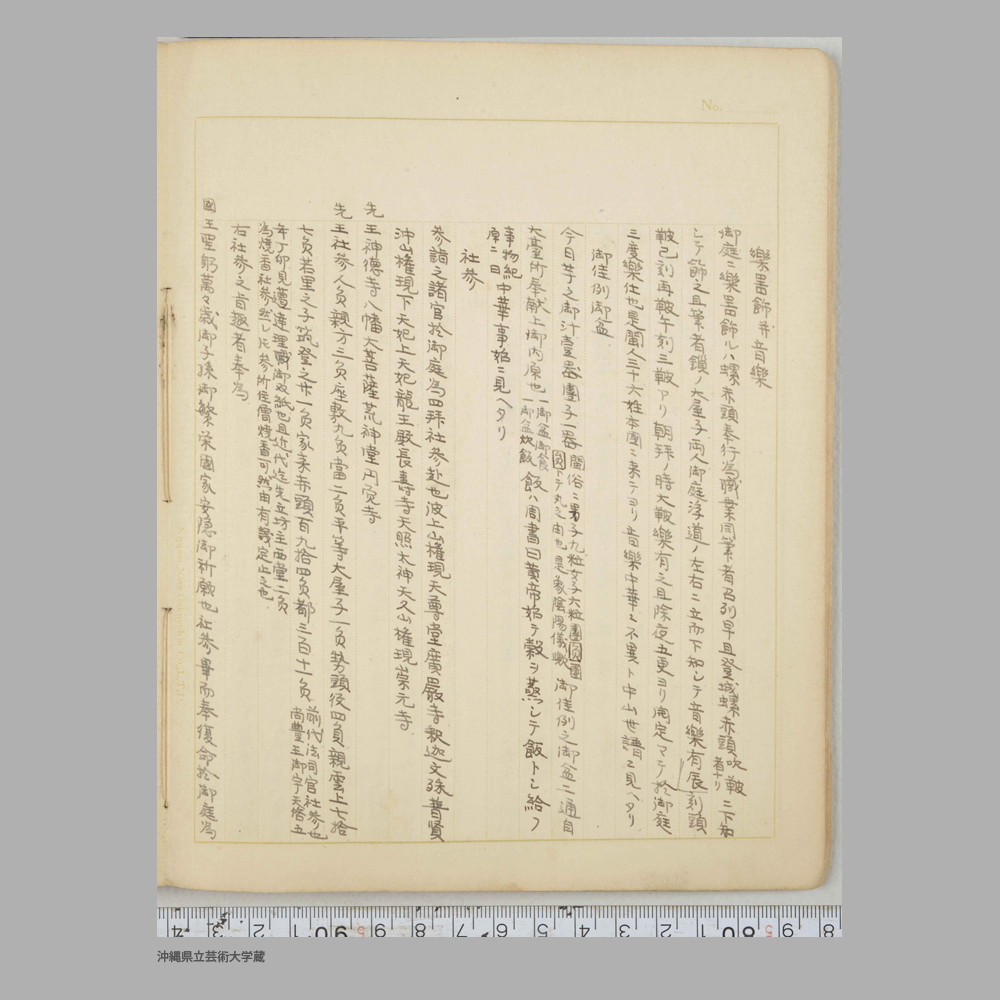 No.
樂器飾幷音樂
御庭ニ樂器飾ルハ螺赤頭奉行為職業同筆者召列早旦登城螺赤頭吹皷者ナリニ下知
シテ飾之且筆者鎖ノ大屋子両人御庭浮道ノ左右ニ立而下知シテ音樂有辰刻頭
皷巳刻再皷午刻三皷アリ朝拜ノ時大皷樂有之且除夜五更ヨリ開定マテ於御庭
三度樂仕也是閩人三十六姓本國ニ来テヨリ音樂中華ト不異ト中山世譜ニ見ヘタリ
御佳例御盆
今日芋之御汁壹器團子一器閩俗ニ男子九粒女子六粒團圓團
圓下テ丸之由也是象陰陽儀歟御佳例之御盆二通自
大臺所奉献上御内原也一御盆御食
一御盆炊飯飯ハ周書曰黄帝始テ穀ヲ蒸シテ飯トシ給フ
事物紀
原ニ曰中華事始ニ見ヘタリ
社参
参詣之諸官於御庭為四拜社参赴也波上山權現天尊堂廣嚴寺釈迦文殊普賢
沖山權現下天妃上天妃龍王殿長壽寺天照大神天久山權現崇元寺
先王神德寺八幡大菩薩荒神堂円覚寺
先王社参人負親方三負座敷九負當二負平等大屋子一負勢頭役四負親雲上七拾
七負若里之子筑登之廿一負家来赤頭百九拾四負都三百十一負前代法司官社参也
尚豊王御宇天啓五
年丁卯見遭達理職御双紙也且近代迄先立坊主西堂二負
為燒香社参然レ圧参所住僧燒香可然由有議定止之也
右社参之旨趣者奉為
國王聖躬萬々歳御子孫御繁栄國家安隠御祈願也社参畢而奉復命於御庭為
沖縄県立芸術大学蔵